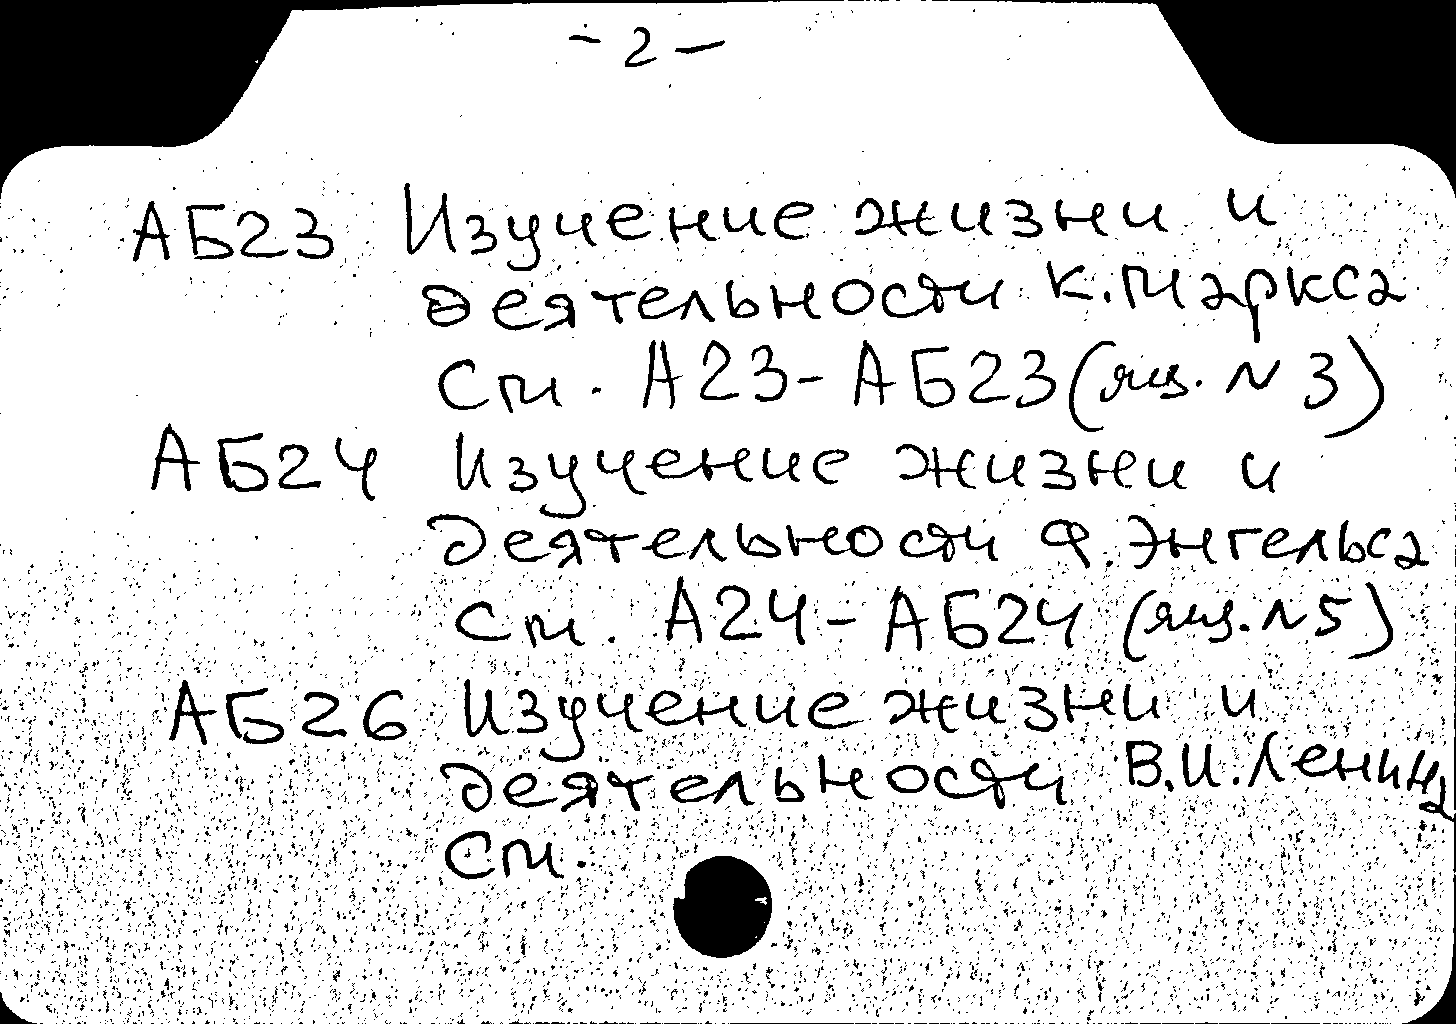 - 2 -
АБ23 Изучение жизни и
деятельности К. Маркса
См. А23-АБ23 (ящ. N 3)
АБ24 Изучение жизни и
деятельности Ф. Энгельса
См. А24-АБ24 (ящ. N 5)
АБ26 Изучение жизни и
деятельности В.И. Ленина
См.